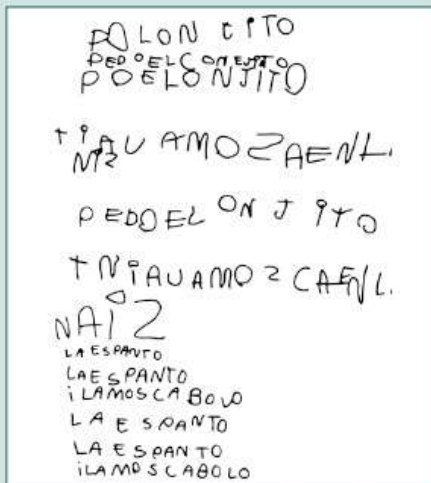 POLON CITO
PEDOELCONEJITO
POELONJITO
TiAU AMOZAENL.
NiZ
PEDOEL ON JiTO
TNiAUAMOZCAENL.
NAiZ
LAESPANTO
LAESPANTO
iLAMOSCABOLO
LA ESPANTO
LA ESPANTO
iLAMOSCABOLO